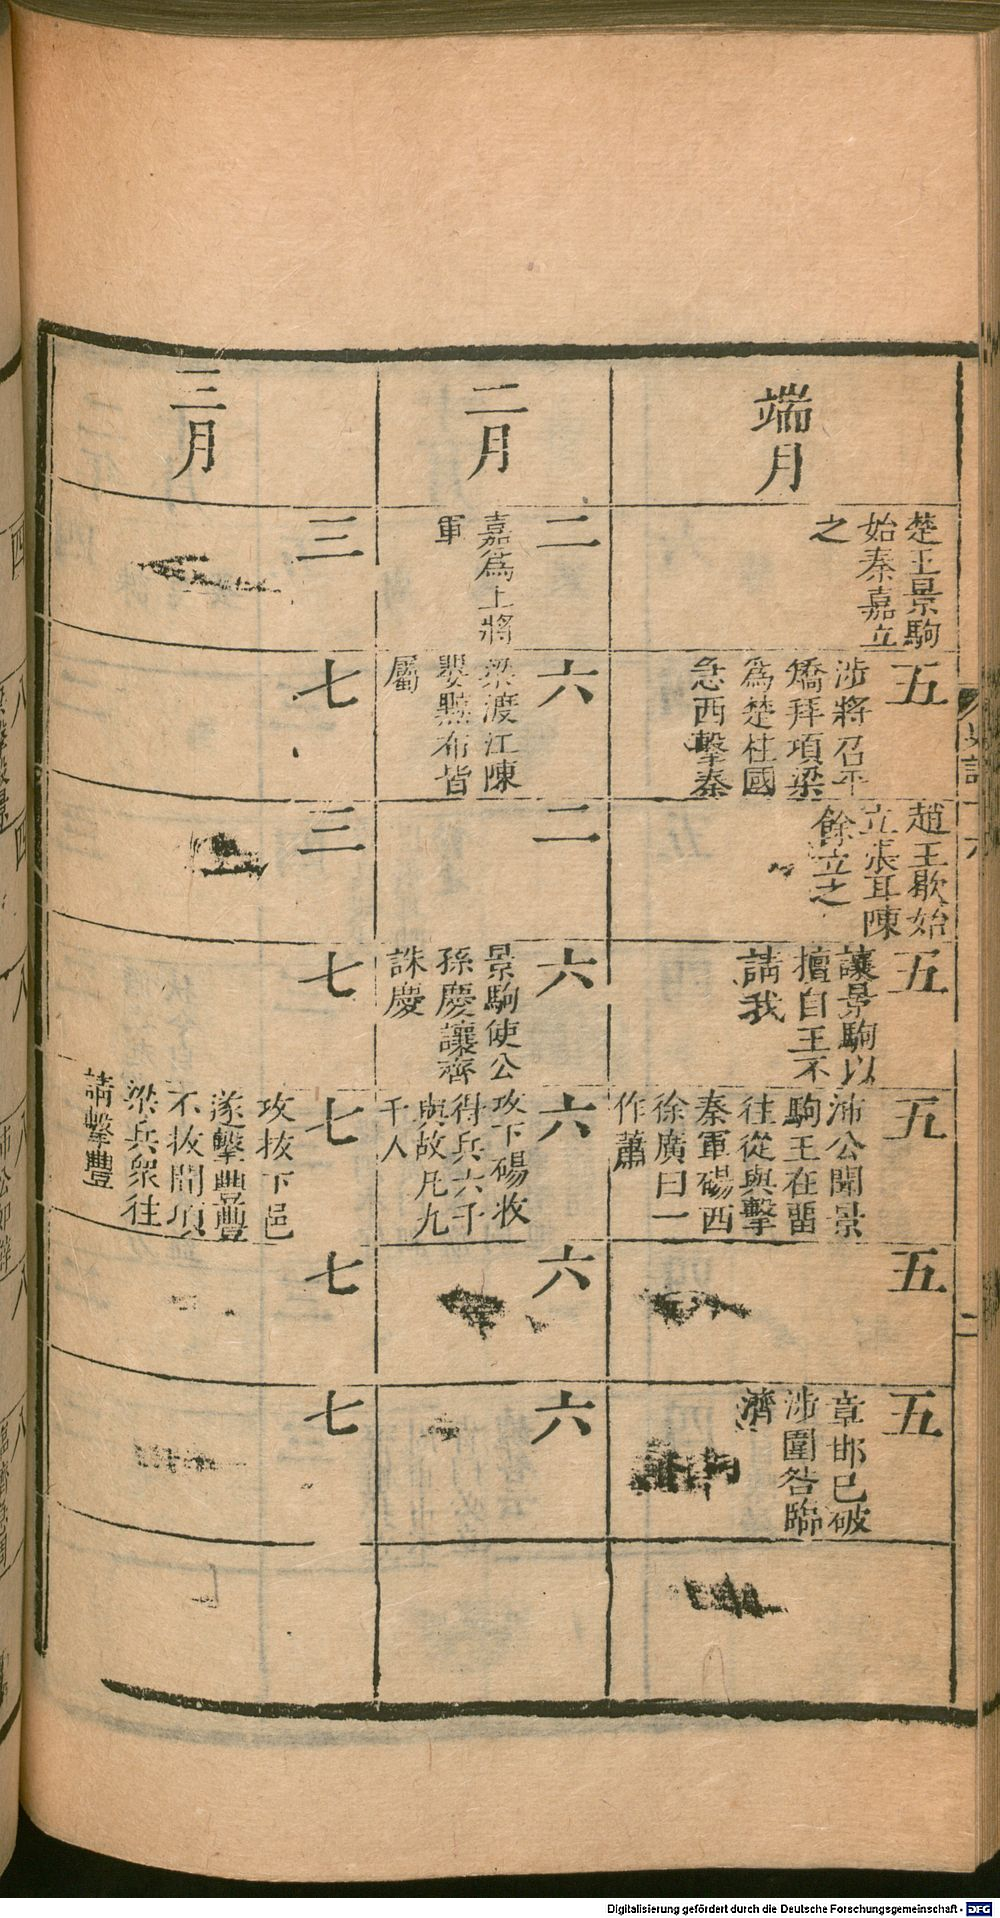 端月
楚王景駒
始秦嘉立
之
五
涉將召平
矯拜項梁
爲楚柱國
急西擊秦
趙王歇始
立張耳陳
餘立之
五
讓景駒以
擅自王不
請我
五
沛公聞景
駒王在畱
往從與擊
秦軍碭西
徐廣曰一
作蕭
五
五
章邯已破
涉圍咎臨
濟
二月
二
嘉爲上將
軍
六
梁渡江陳
嬰黥布皆
屬
二
六
景駒使公
孫慶讓齊
誅慶
六
攻下碭收
得兵六千
與故凡九
千人
六
六
三月
三
七
三
七
七
攻拔下邑
遂擊豐豐
不拔聞項
梁兵衆往
請擊豐
七
七
史記
二
Digitalisierung gefördert durch die Deutsche Forschungsgemeinschaft - DFG